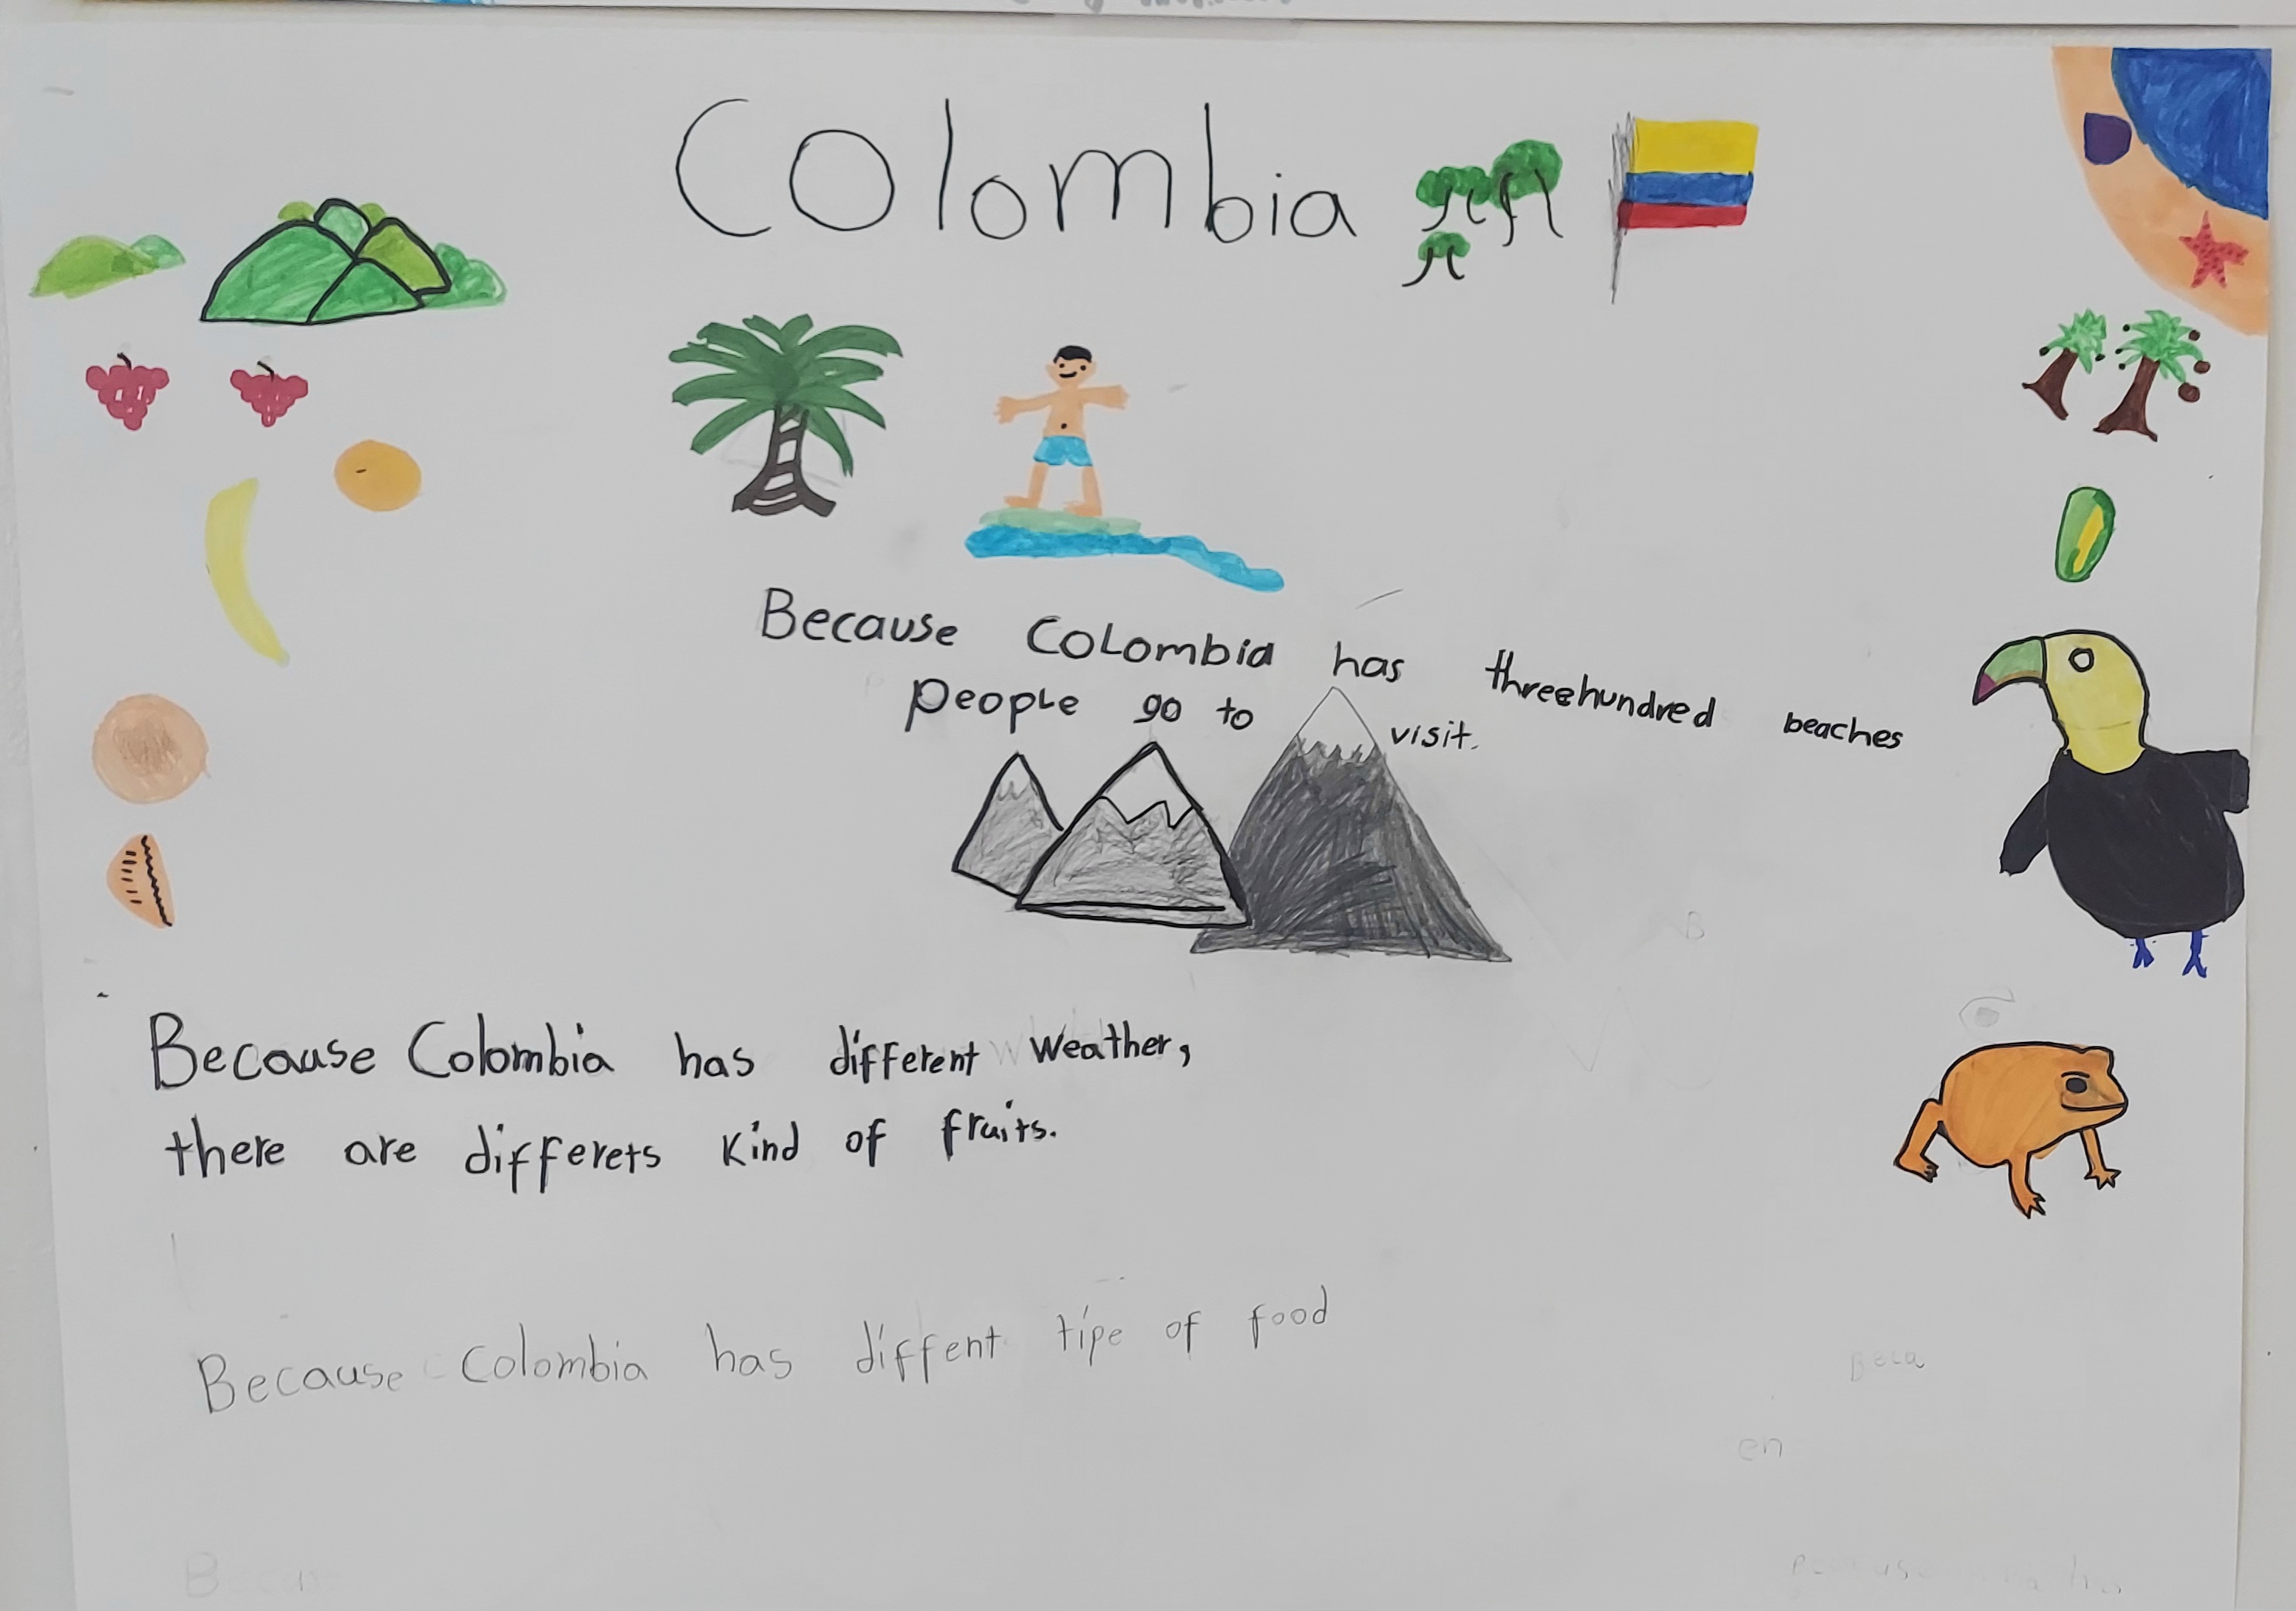 Colombia
Because Colombia has threehundred beaches
people go to visit.
Because Colombia has different weather,
there are differets kind of fruits.
Because Colombia has diffent tipe of food
Beca
en